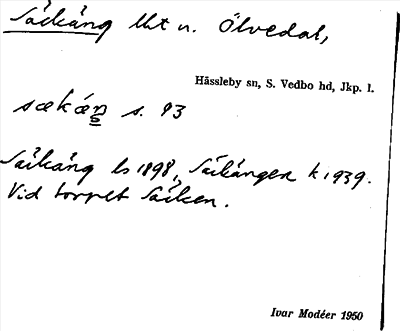 Säckäng lht u. Ölvedal,
Hässleby sn, S. Vedbo hd, Jkp. l.
sækæŋ s. 93
Säikäng ls 1898, Säikängen k 1939.
Vid torpet Säiken.
Ivar Modéer 1950